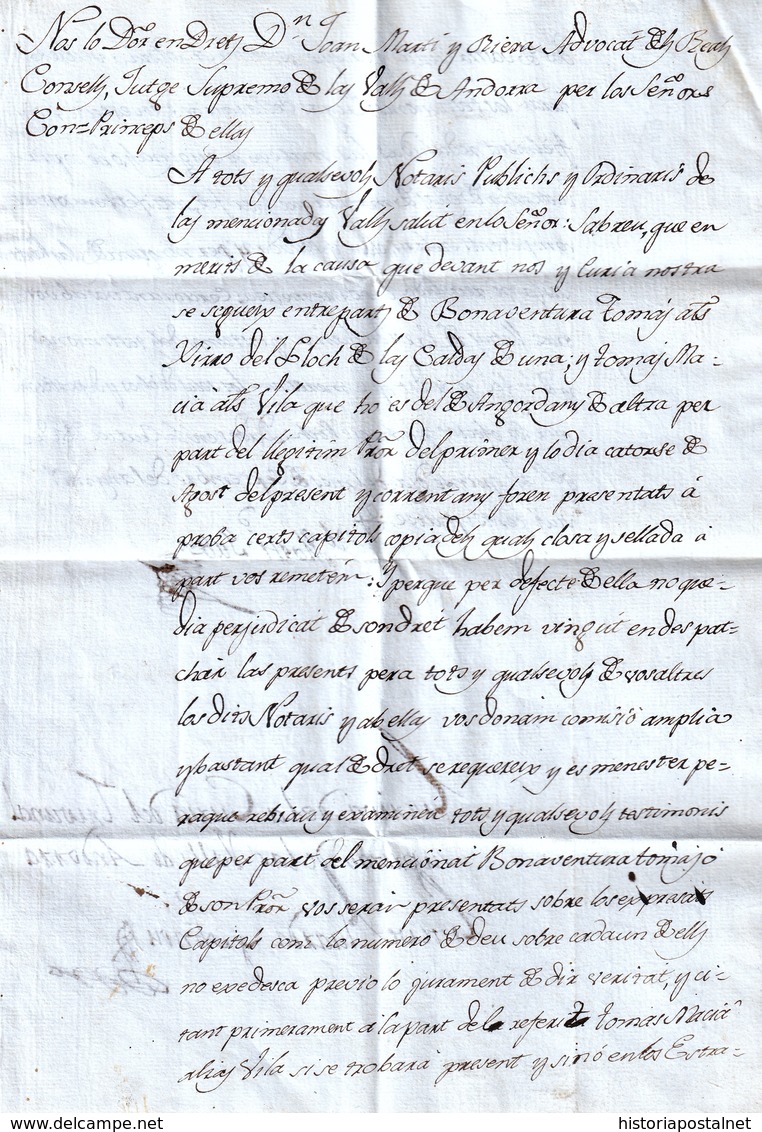 Nos lo Dor en Drets Dn. Joan Martí y Riera Advocat dels Reals
Consells, Jutge Supremo de las Valls de Andorra per los Señors
Con=Princeps de ellas
A tots y qualsevols Notaris Publichs y Ordinaris de
las mencionadas Valls salut en lo Señor: Sabreu, que en
merits de la causa que devant nos y Curia nostra
se segueix entre parts de Bonaventura Tomas als
Xirro del Lloch de las Caldas de una; y Tomas Ma-
cia als Vila que ho es del de Angordany de altra per
part del llegitim Pror del primer y lo dia catorse de
Agost del present y corrent any foren presentats á
proba certs capitols copia dels quals closa y sellada a
part vos remetém: Y perque per defecte de ella no que-
dia perjudicat de son dret habem vingút en despat-
char las presents pera tots y qualsevols de vosaltres
los dits Notaris y ab ellas vos donam comisió amplia
y bastant qual de dret se requereix y es menester pe-
raque rebiau y examineu tots y qualsevols testimonis
que per part del mencionat Bonaventura Tomas ó
de son Pror vos seran presentats sobre los expresats
Capitols com lo numero de deu sobre cada un de ells
no exedesca previo lo jurament de dir veritat, y ci-
tant primerament á la part de la referit Tomas Maciá
alias Vila si se trobara present y sinó en los Estra-
www.delcampe.net
historiapostalnet